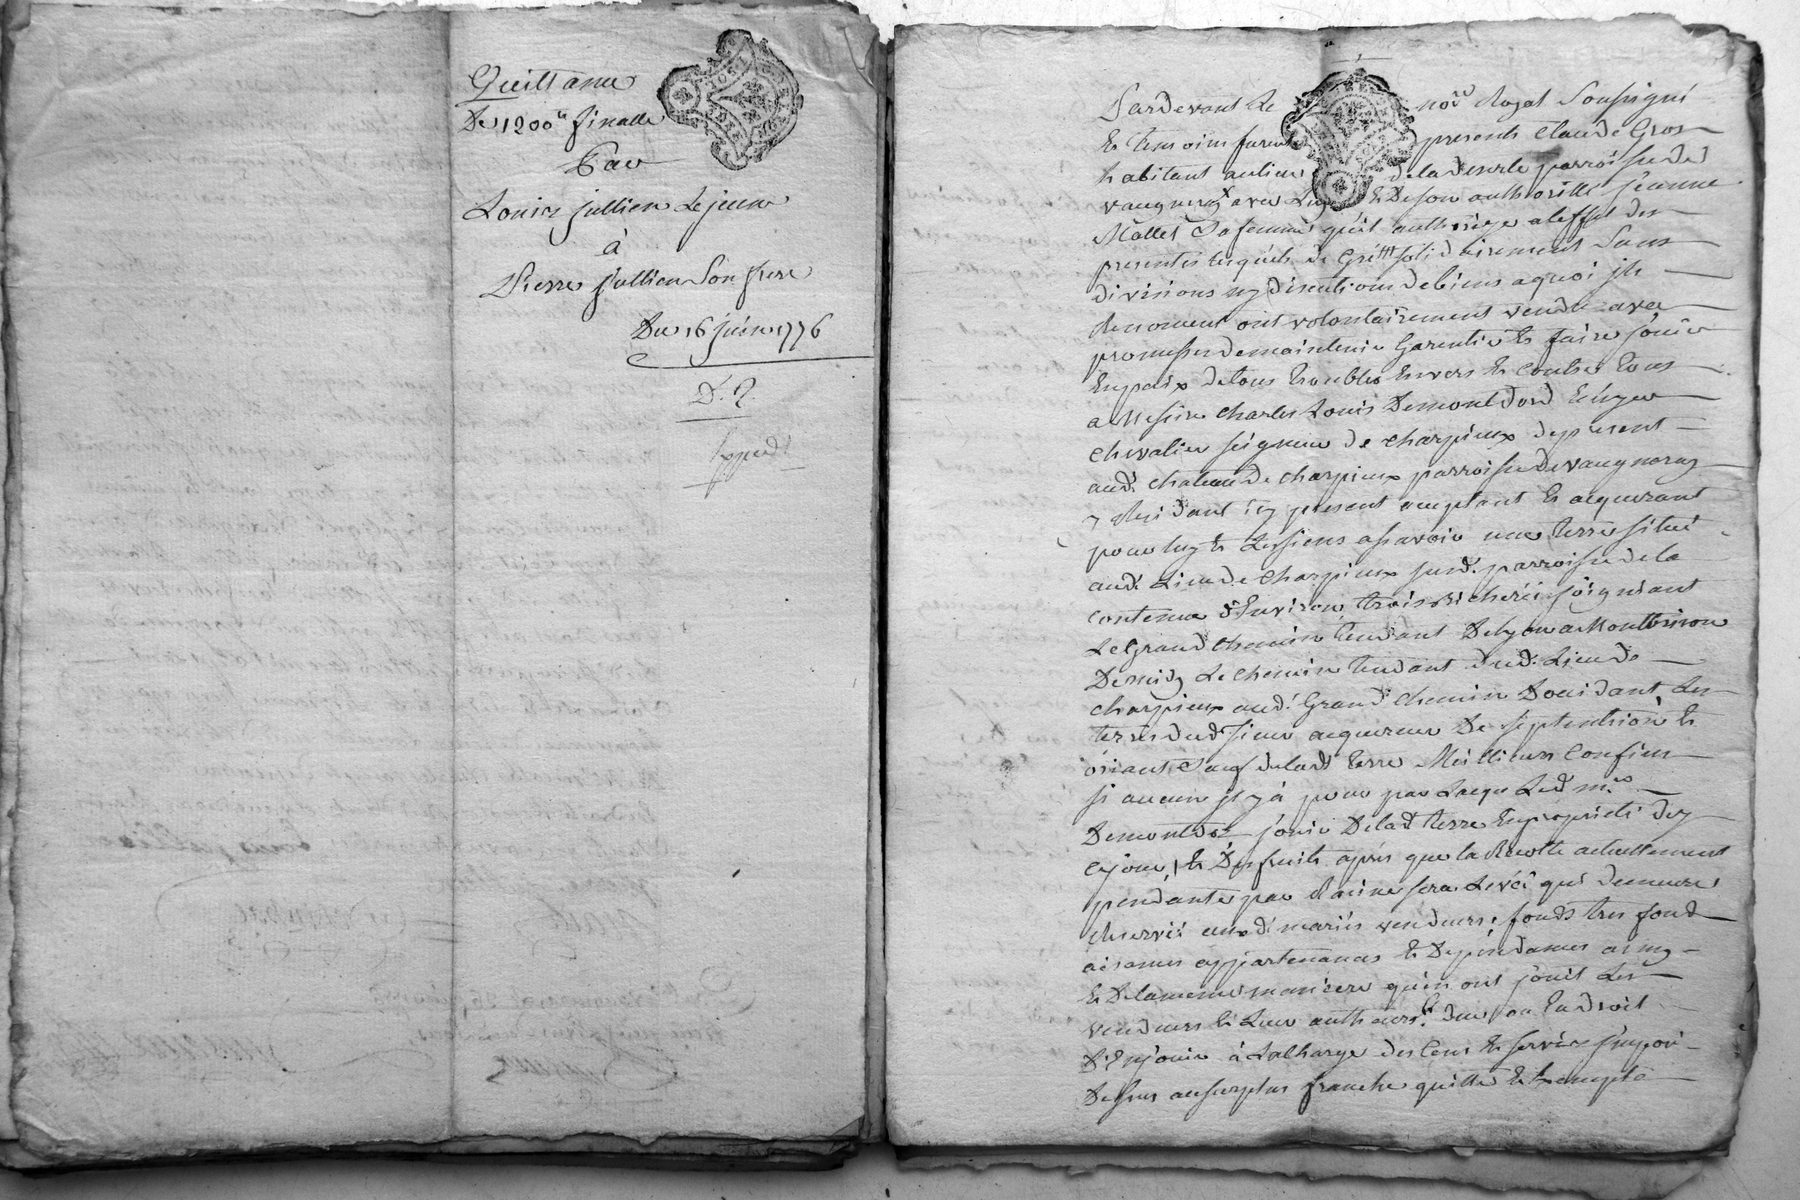 Quittance
De 1200ᵗᵗ finalle
Par
Louis jullien Lejeune
à
Pierre jullien Son frere
Du 16 juin 1776
D. R.
Expedᵉ
Pardevant Le noʳᵉ Royal Soussigné
Et temoins furent presents Claude Gros
habitant au lieu de la parroisse de
vaugneray avec Luy Et De son authorité jeanne
Mallet Sa femme qu'il authorise a l'effet des
presentes lesquels de Gré solidairement Sans
divisions ny discutions de biens a quoi jls
Renoncent ont volontairement vendu avec
promesses de maintenir Garentir Et faire jouir
En paix de tous troubles Envers Et Contre tous
a Messire Charles Louis Demontdord Ecuyer
chevalier seigneur de Charpieux
aud. chateau De Charpieux parroisse De vaugneray
y Residant icy present acceptant Et acquerant
pour luy Et Les siens assavoir une terre située
aud. Lieu de Charpieux susd. parroisse de la
contenue d'Environ trois bicherées joignant
Le Grand Chemin tendant De lyon a Montbrison
De midy Le chemin tendant dud. Lieu de
charpieux aud. Grand Chemin Doccidant, Les
terres dud Sieur acquereur De septentrion Et
oriant Sauf de lad. terre Meilleurs Confins
si aucun jl y a pour par Led mʳᵉ
Demontdor jouir De lad terre En propriété dez
cejour, Et Des fruits après que la Recolte actuellement
pendante par Racine sera Levée qui demeure
Reservée auxd. mariés vendeurs, fonds tres fond
aisances appartenances Et Dependances
Et De la meme maniere qu'en ont jouit Les
vendeurs Et Leur autheurs, ou En droit
D'En jouir à La Charge des Cens Et servis jmposés
Dessus au surplus franche quitte Et Exempte